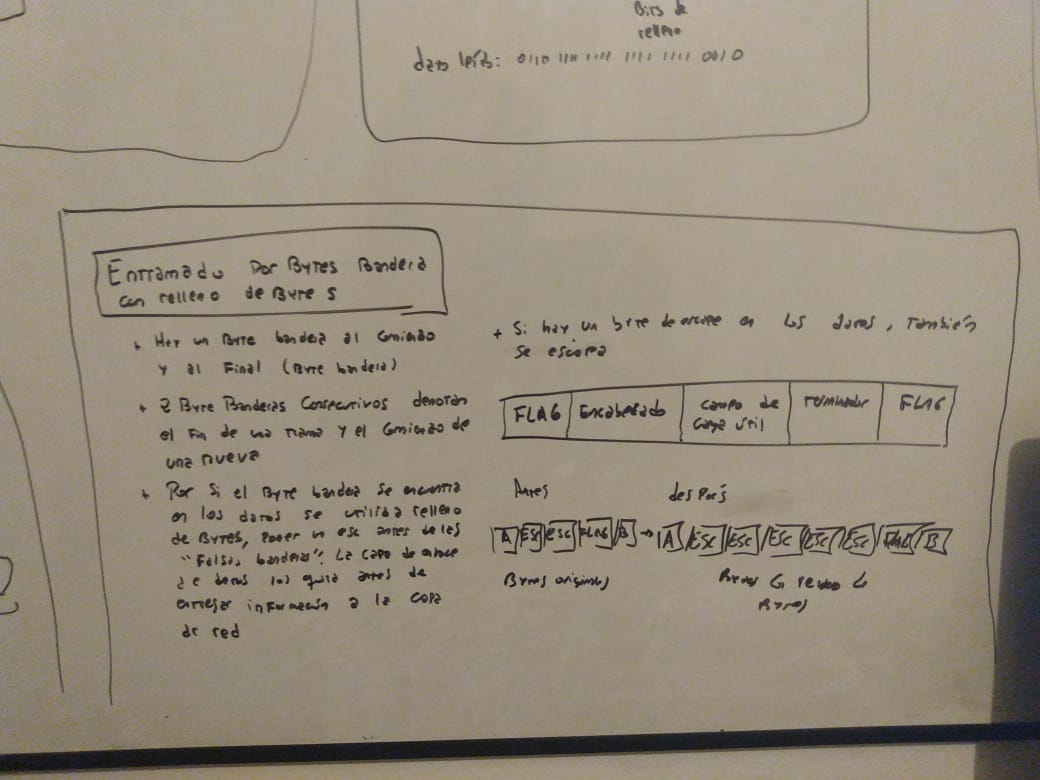 Bits de
relleno
dato leído: 0110 1111 1111 1111 1111 0010
Entramado Por Bytes Bandera
con relleno de Bytes
Hay un Byte bandera al comienzo
y al Final (Byte bandera)
+ 2 Byte Banderas Consecutivos denotan
el Fin de una trama y el comienzo de
una nueva
+ Por Si el Byte bandera se encuentra
en los datos se utiliza relleno
de Bytes, Poner un esc antes de las
"Falsas banderas". La capa de enlace
de datos los quita antes de
entregar información a la capa
de red
+ Si hay un byte de escape en los datos, también
se escapa
FLAG Encabezado campo de terminador FLAG
carga útil
Antes después
A ESC ESC FLAG B → A ESC ESC ESC ESC ESC FLAG B
Bytes originales Bytes relleno de
Bytes